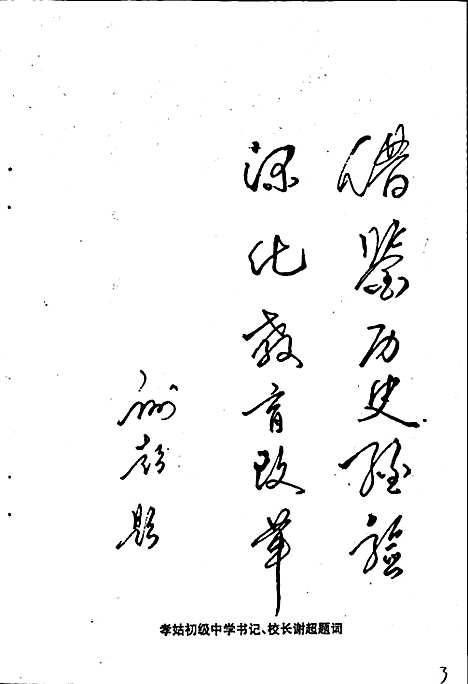 借鉴历史经验
深化教育改革
谢超题
孝姑初级中学书记、校长谢超题词
3